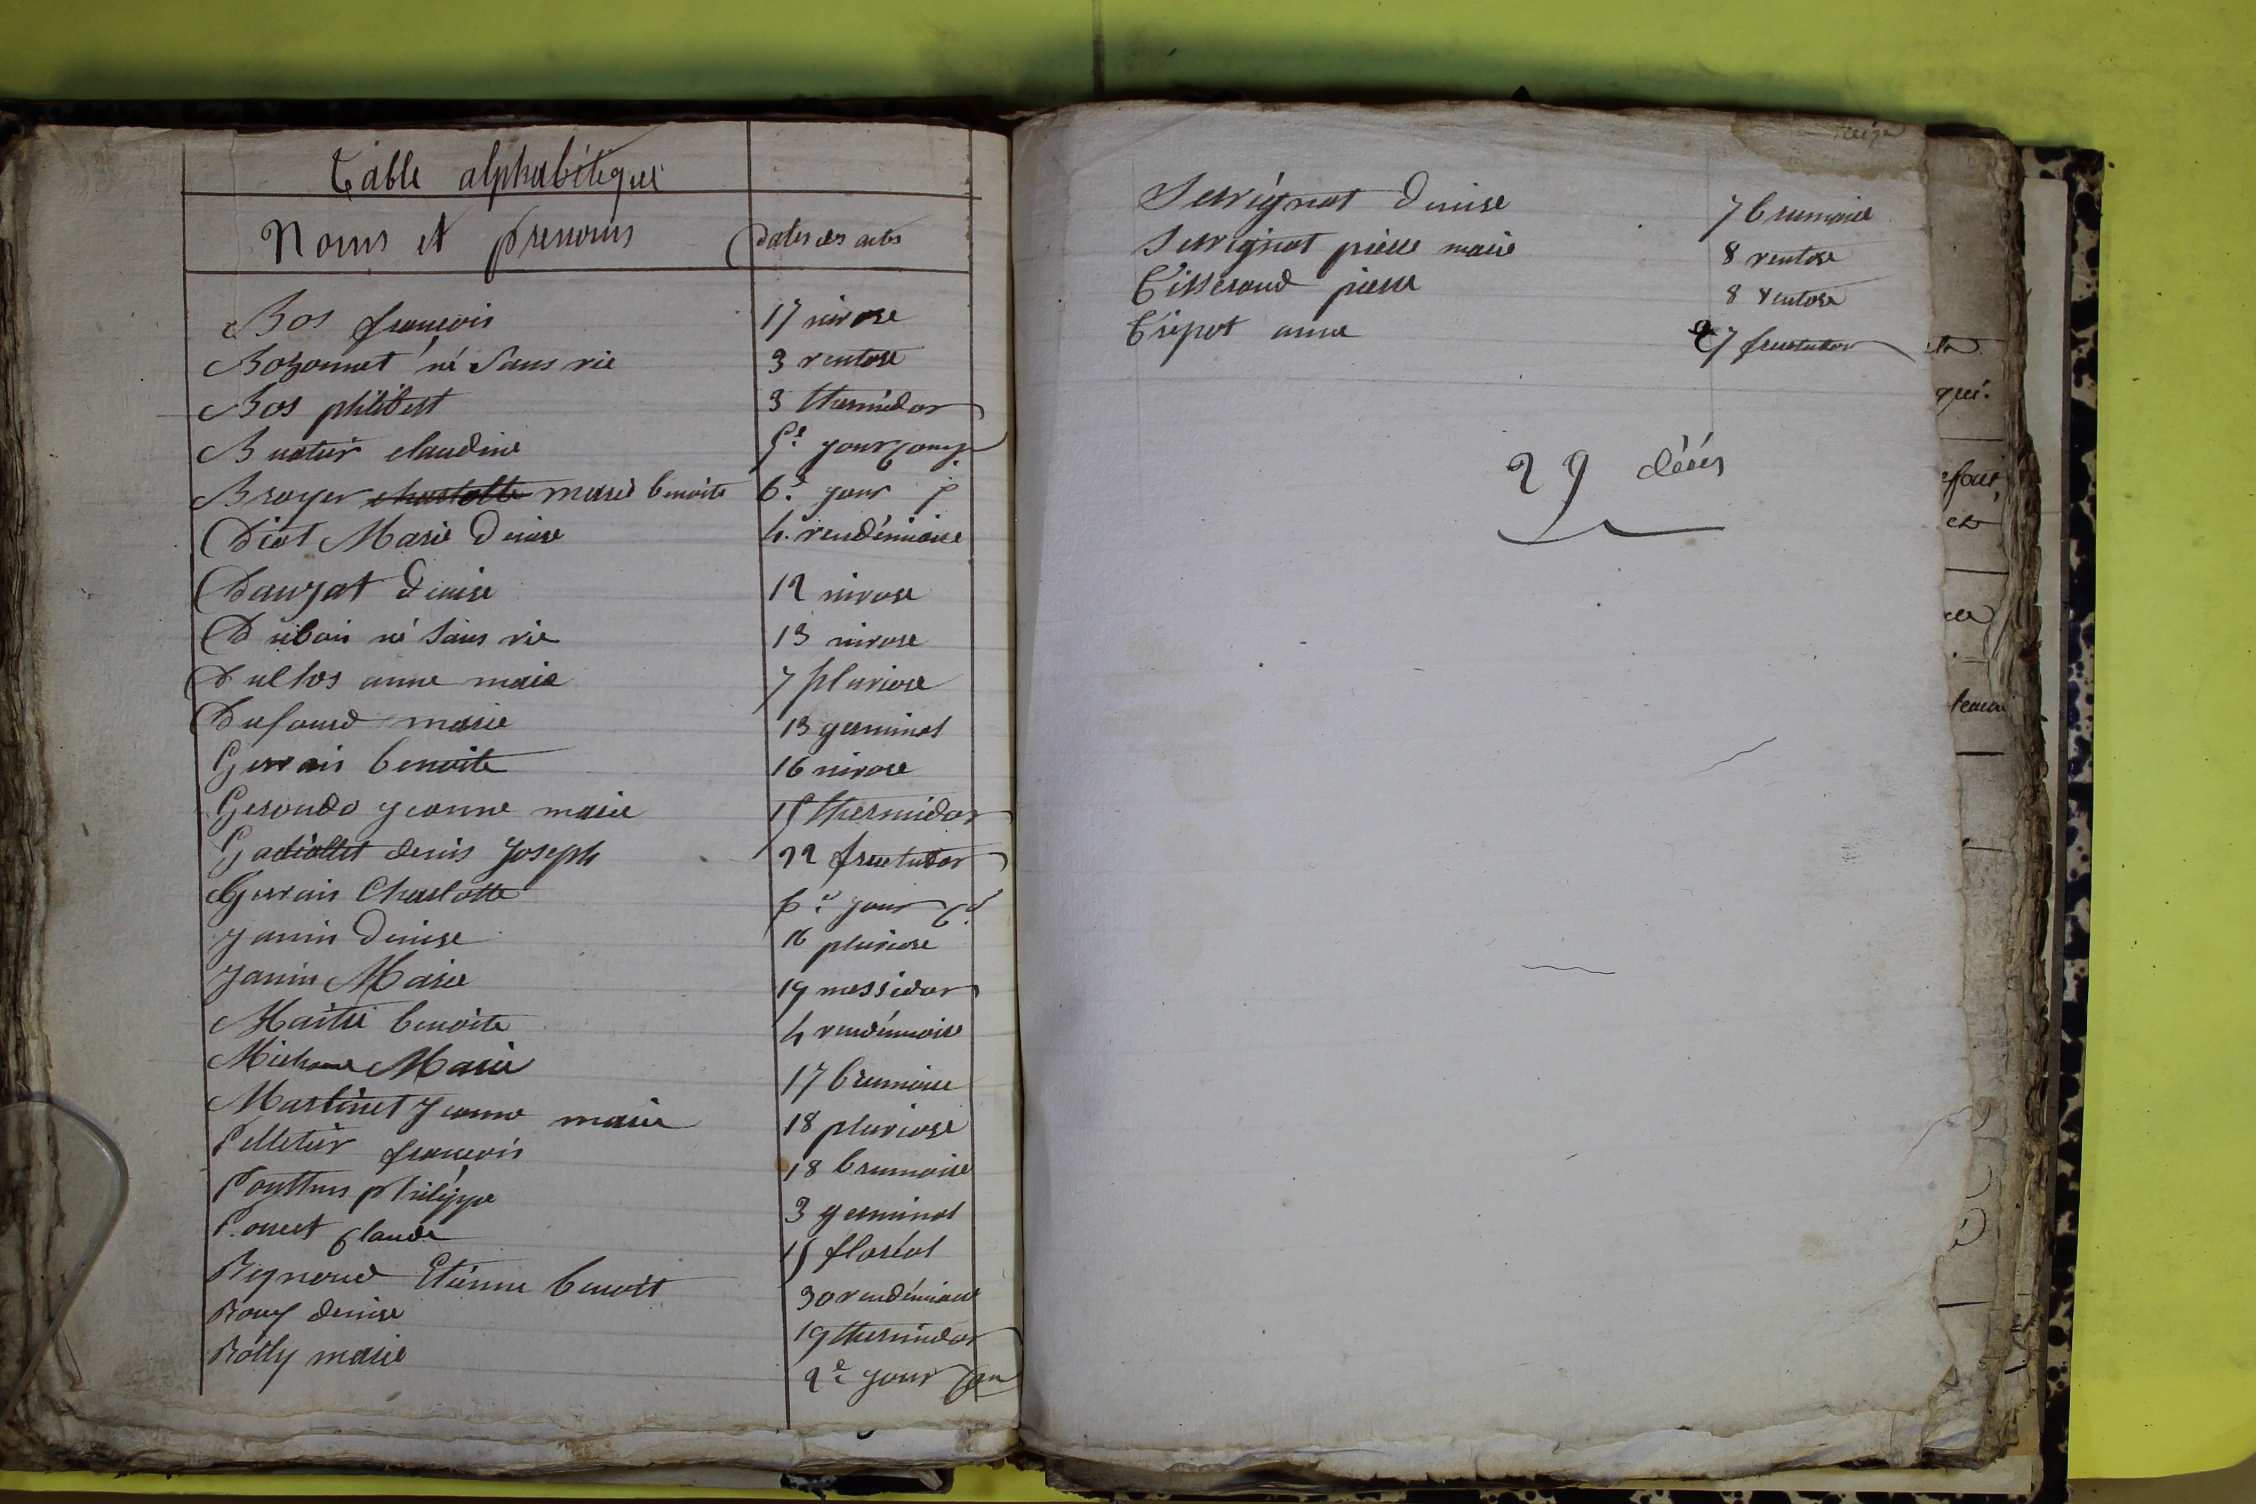 Table alphabétique
Noms et prenoms dates des actes
Bos françois 17 nivose
Bozonnet né sans vie 3 ventose
Bos philibert 3 thermidor
Buatier claudine 5e jour comp
Broyer charlotte marie benoite 6e jour
Diot Marie Denise 4 vendémiaire
Dauzat Denise 12 nivose
Dubois né sans vie 13 nivose
Duclos anne marie 7 pluviose
Dufour marie 13 germinal
Gervais benoite 16 nivose
jeanne marie 15 thermidor
Gadiollet denis Joseph 22 fructidor
Gervais Charlotte 6e jour
Janin Denise 16 pluviose
Janin Marie 19 messidor
Maitre benoite 4 vendémiaire
Marie 17 brumaire
Martinet Jeanne marie 18 pluviose
Pelletier françois 18 brumaire
Ponthus philippe 3 germinal
Poncet Claude 15 floréal
Etienne benoit 30 vendémiaire
denise 19 thermidor
Rolly marie 2e jour
Sevignat Denise 7 brumaire
Sevignat pierre marie 8 ventose
Tisserand pierre 8 ventose
Tripot anne 27 fructidor
29 décés